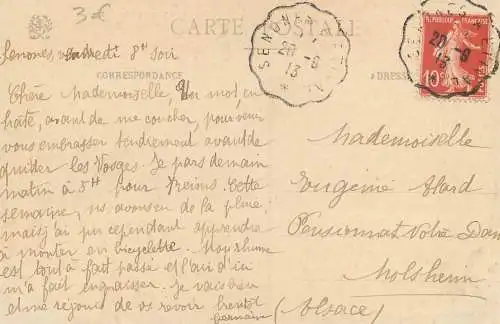 3€
CARTE POSTALE
CORRESPONDANCE
ADRESSE
SENONES
20-9
13
SENONES
20-9
13
REPUBLIQUE FRANÇAISE
10
POSTES
Senones, vendredi 8h soir
Chère Mademoiselle, Un mot, en
hâte, avant de me coucher, pour
vous embrasser tendrement avant de
quitter les Vosges. Je pars demain
matin à 5H pour Reims. Cette
semaine, ns avons eu de la pluie
mais j'ai pu cependant apprendre
à monter en bicyclette. Mon rhume
est tout à fait passé et l'air d'ici
m'a fait engraisser. Je vais bien
et me réjouis de vs revoir bientôt
Germaine
Mademoiselle
Eugénie Alard
Pensionnat Notre Dame
Molsheim
(Alsace)